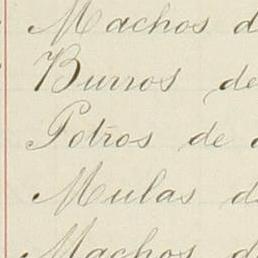 Machos d
Burros de
Potros de
Mulas d
Machos d